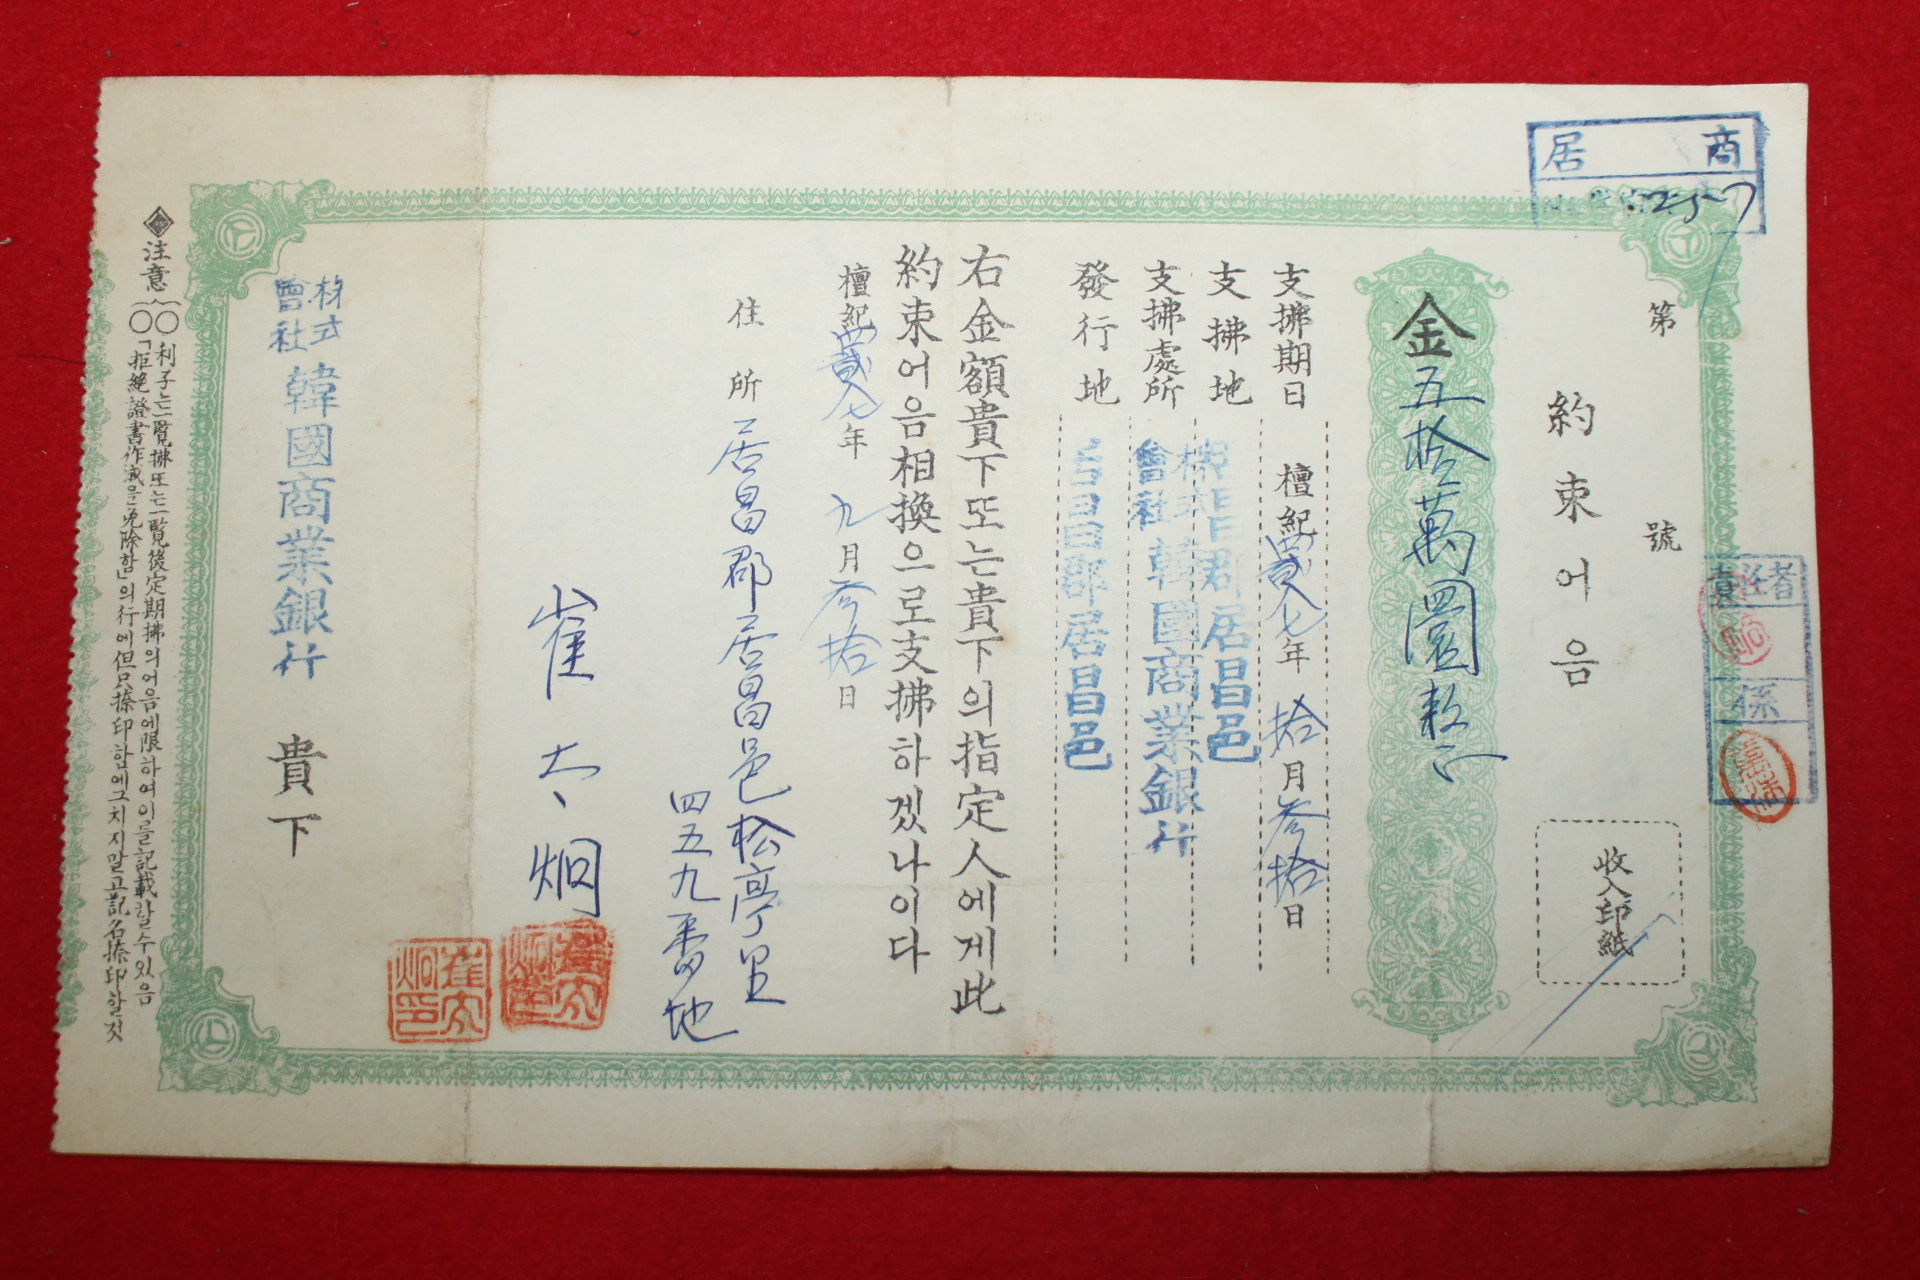 商 居
25-7
第 號
責任者
係
約束어음
收入印紙
金五拾萬圜整
支拂期日 檀紀四貳八七年拾月參拾日
支拂地 居昌郡居昌邑
支拂處所 株式會社韓國商業銀行
發行地 居昌郡居昌邑
右金額貴下또는貴下의指定人에게此
約束어음相換으로支拂하겠나이다
檀紀四貳八七年九月參拾日
住所 居昌郡居昌邑松亭里
四五九番地
崔 炯
株式會社韓國商業銀行 貴下
注意
○利子는一覽拂또는一覽後定期拂의어음에限하여이를記載할수있음
○「拒絶證書作成을免除함」의行에但只捺印함에그치지말고記名捺印할것